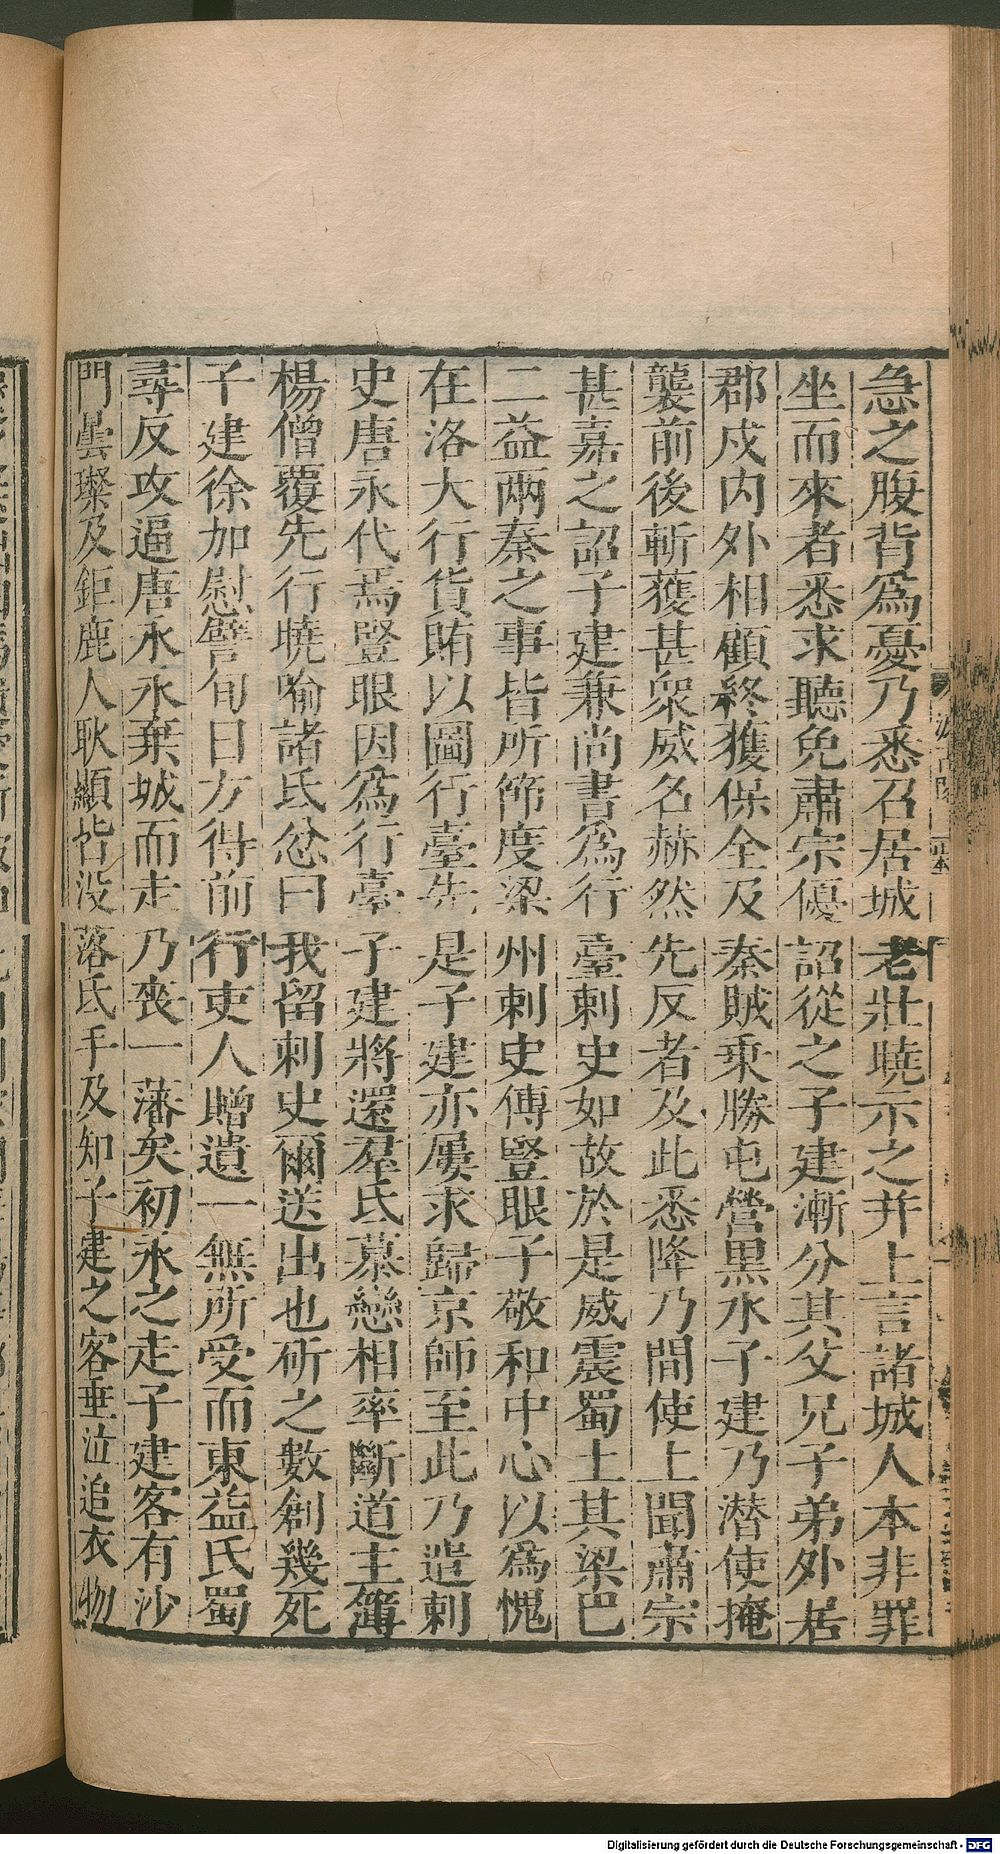 急之腹背爲憂乃悉召居城老壯曉示之并上言諸城人本非罪
坐而來者悉求聽免肅宗優詔從之子建漸分其父兄子弟外居
郡戍内外相顧終獲保全及秦賊乗勝屯營黒水子建乃潜使掩
襲前後斬獲甚衆威名赫然先反者及此悉降乃間使上聞肅宗
甚嘉之詔子建兼尚書爲行臺刺史如故於是威震蜀土其梁巴
二益兩秦之事皆所節度梁州刺史傳豎眼子敬和中心以爲愧
在洛大行貨賄以圖行臺先是子建亦屢求歸京師至此乃遣刺
史唐永代焉豎眼因爲行臺子建將還羣氐慕戀相率斷道主簿
楊僧覆先行曉喻諸氐忿曰我留刺史爾送出也斫之數創幾死
子建徐加慰譬旬日方得前行吏人贈遺一無所受而東益氐蜀
尋反攻逼唐永永棄城而走乃喪一藩矣初永之走子建客有沙
門曇璨及鉅鹿人耿顯皆没落氐手及知子建之客垂泣追衣物
Digitalisierung gefördert durch die Deutsche Forschungsgemeinschaft - DFG